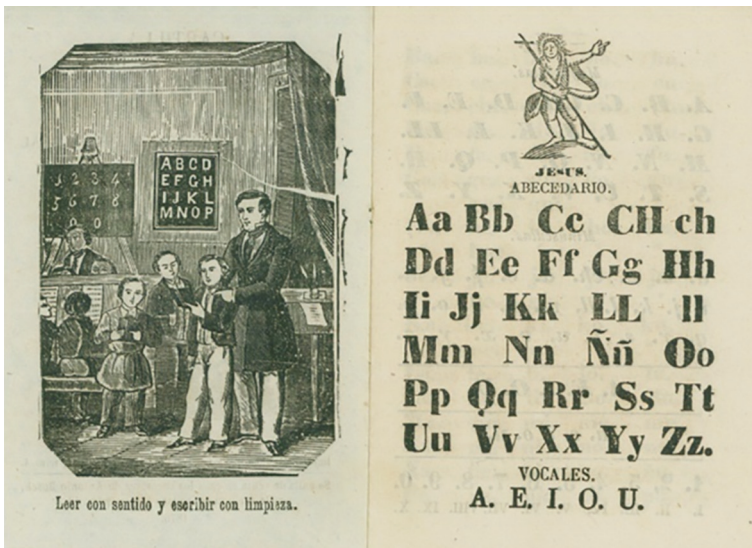 1 2 3 4
5 6 7 8
9 0
ABCD
EFGH
IJKL
MNOP
Leer con sentido y escribir con limpieza.
JESUS.
ABECEDARIO.
Aa Bb Cc CH ch
Dd Ee Ff Gg Hh
Ii Jj Kk LL ll
Mm Nn Ññ Oo
Pp Qq Rr Ss Tt
Uu Vv Xx Yy Zz.
VOCALES.
A. E. I. O. U.